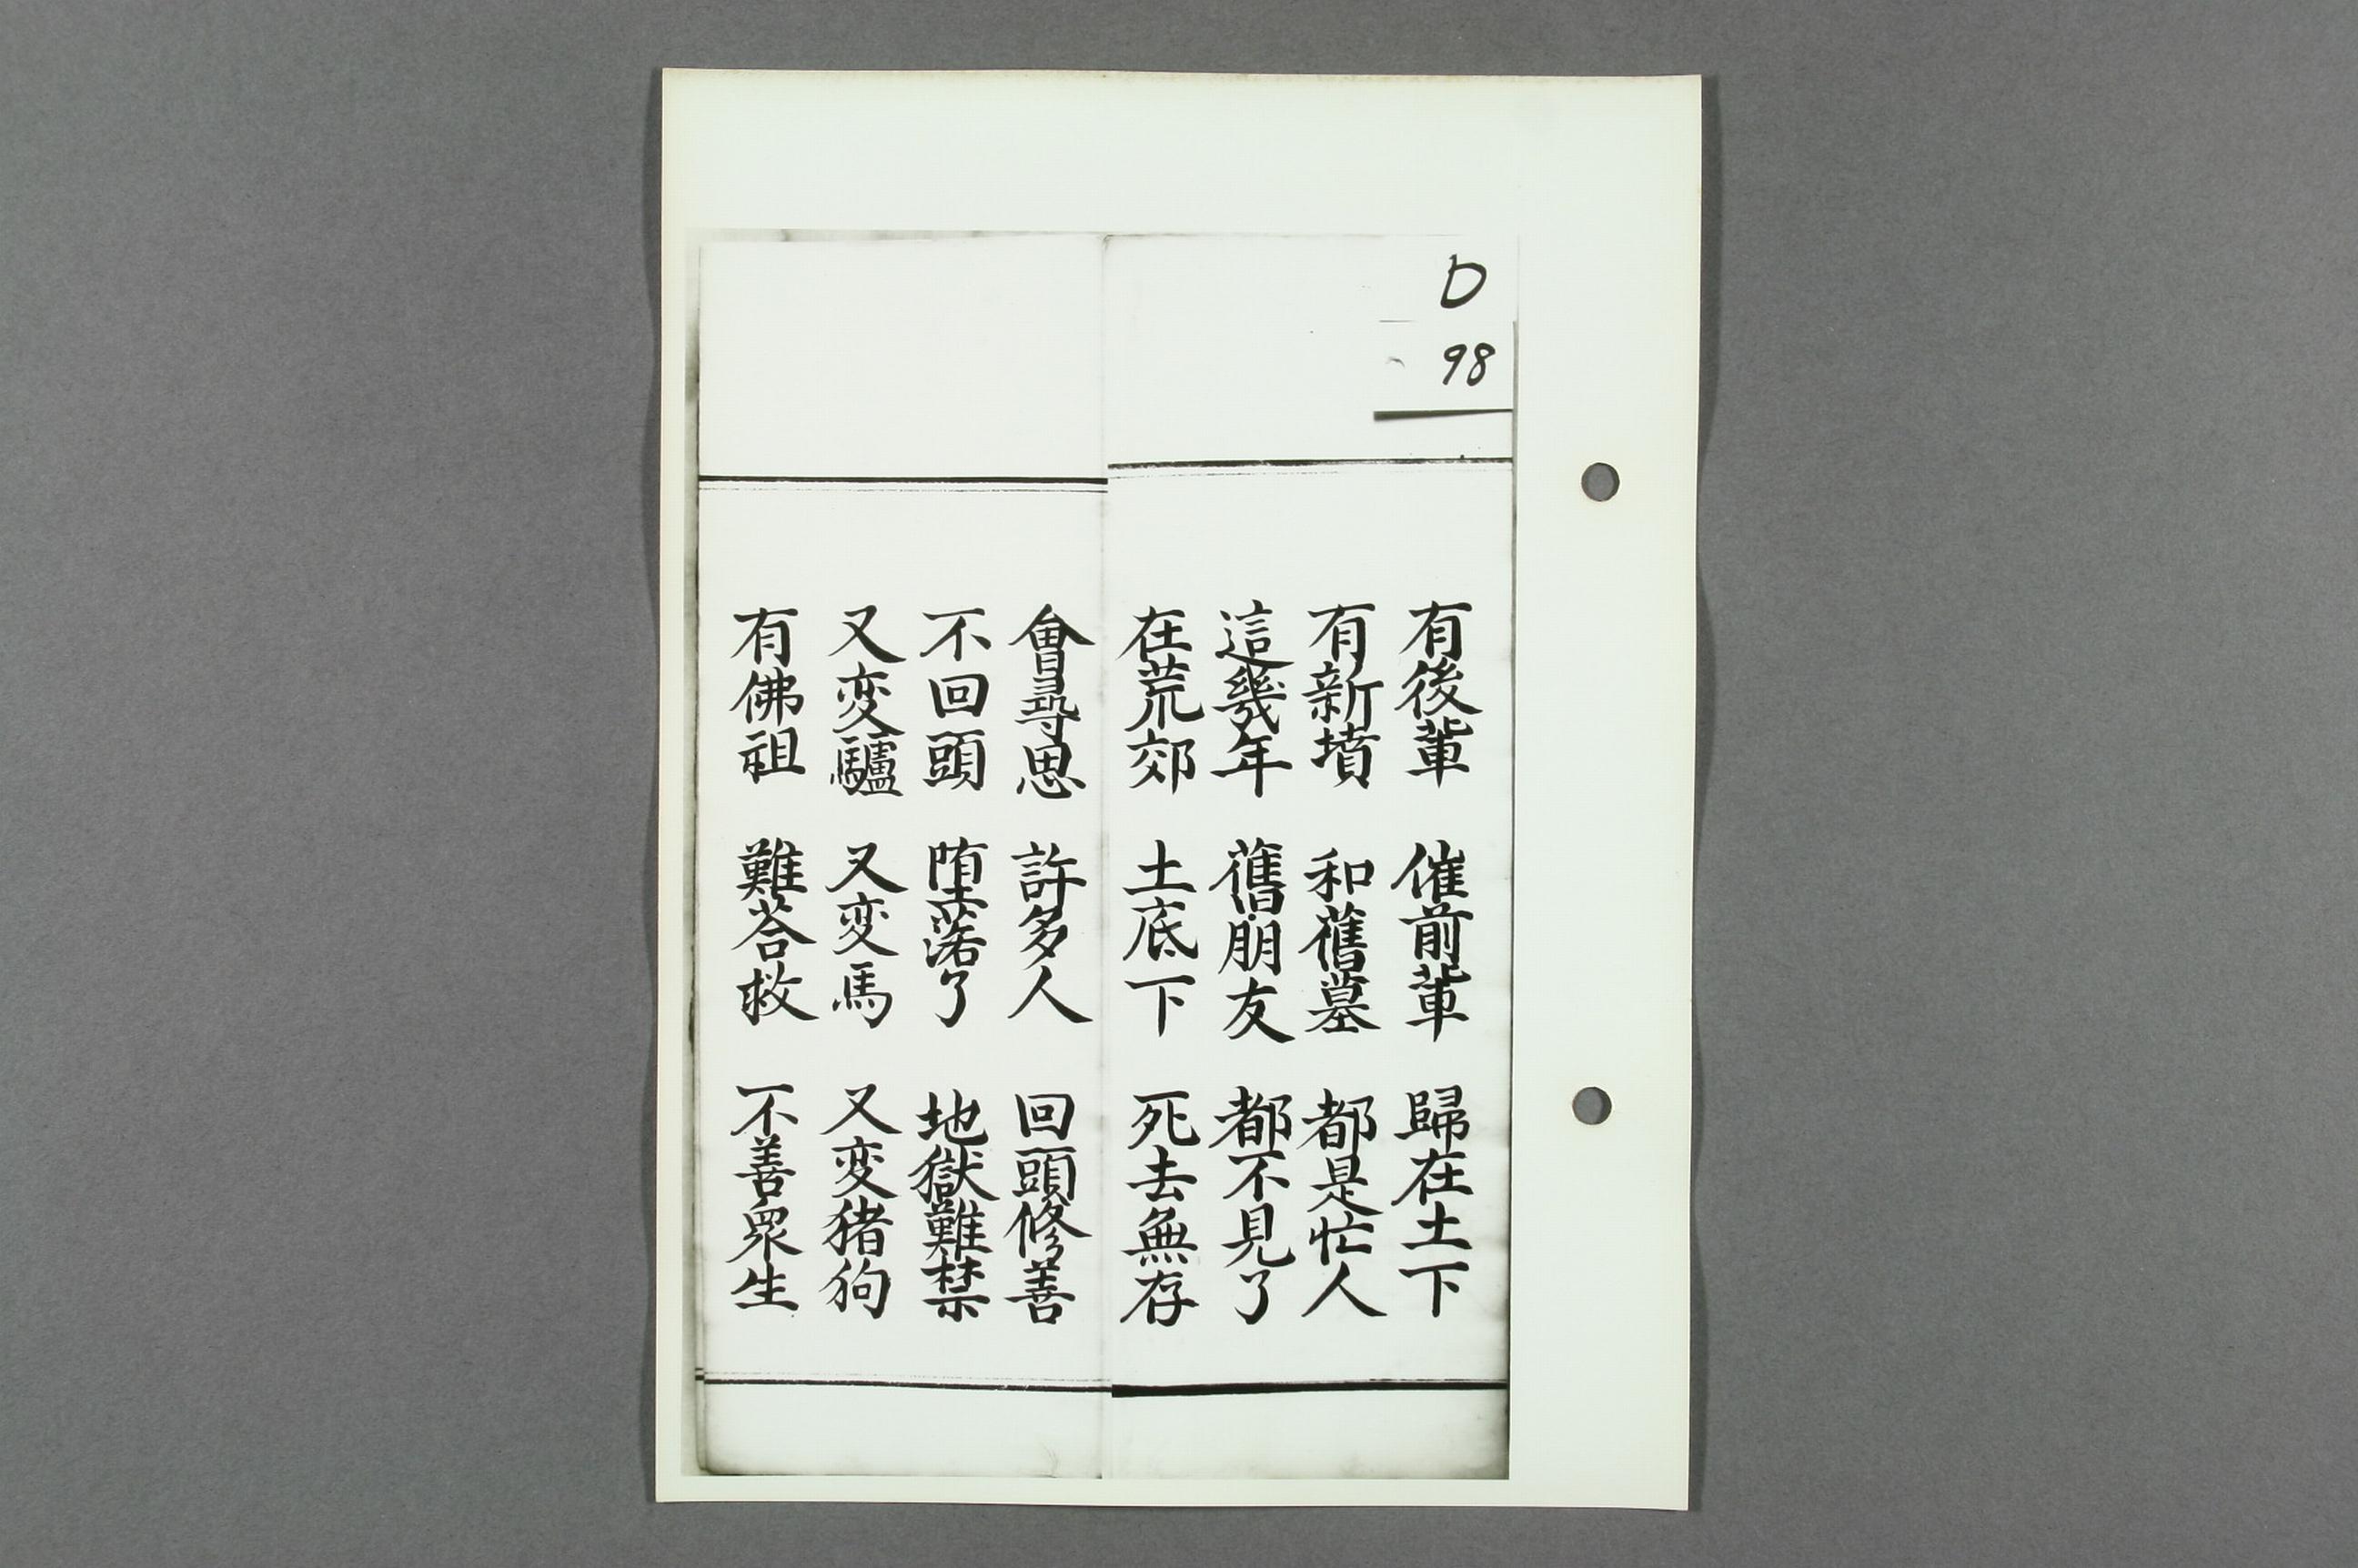 D
98
有後軰 催前軰 歸在土下
有新墳 和舊墓 都是忙人
這幾年 舊朋友 都不見了
在荒郊 土底下 死去無存
會尋思 許多人 回頭修善
不回頭 堕落了 地獄難禁
又変驢 又変馬 又変猪狗
有佛祖 難荅救 不善衆生